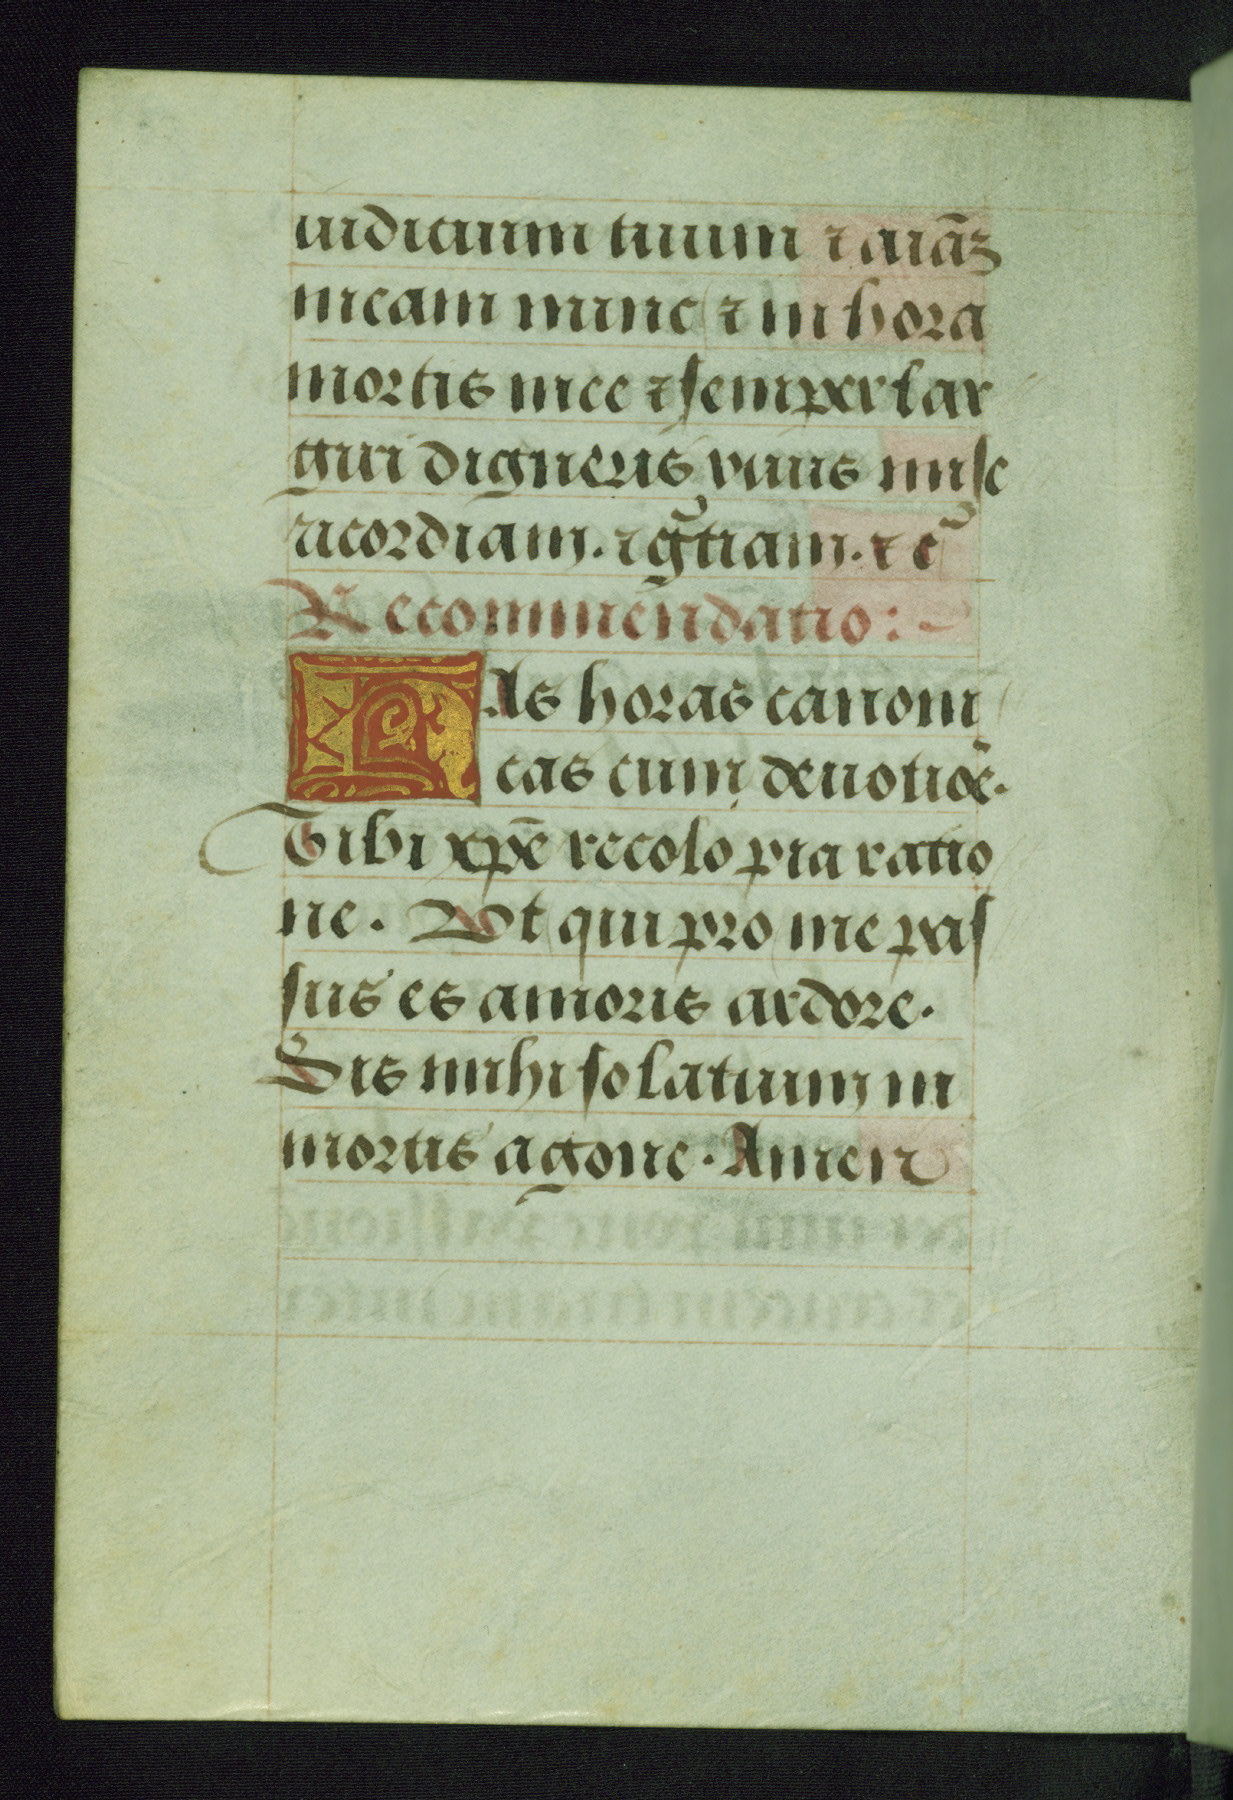 iudicium tuum ⁊ aiãʒ
meam nunc ⁊ in hora
mortis mee ⁊ semper lar
guri digneris viuis mise
ricordiam. ⁊ gr̃tiam. ⁊ c̃
Recommendatio:
HAs horas canoni
cas cum deuotiõe.
Tibi xp̃e recolo pia ratio
ne. Vt qui pro me pas
sus es amoris ardore.
Sis mihi solatium in
mortis agone. Amen